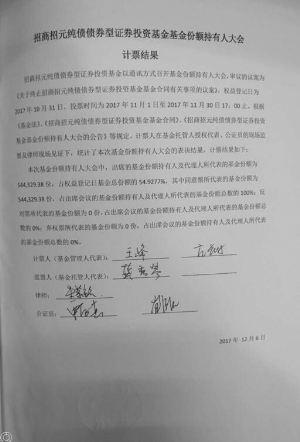 招商招元纯债债券型证券投资基金基金份额持有人大会
计票结果
招商招元纯债债券型证券投资基金以通讯方式召开基金份额持有人大会,审议的议案为
《关于终止招商招元纯债债券型证券投资基金基金合同有关事项的议案》,权益登记日为
2017年10月31日,投票时间为2017年11月1日至2017年11月30日17:00止。根据
《基金法》、《招商招元纯债债券型证券投资基金基金合同》、《招商招元纯债债券型证券投资
基金基金份额持有人大会的公告》等规定,计票人在基金托管人授权代表、公证员的现场监
督及律师现场见证下,统计了本次基金份额持有人大会的表决结果,计票结果如下:
本次基金份额持有人大会中,出席的基金份额持有人及代理人所代表的基金份额为
344,329.38份,占权益登记日基金总份额的54.9277%。其中同意票所代表的基金份额为
344,329.38份,占出席会议的基金份额持有人及代理人所代表的基金份额总数的100%;反
对票所代表的基金份额为0份,占出席会议的基金份额持有人及代理人所代表的基金份额总
数的0%;弃权票所代表的基金份额为0份,占出席会议的基金份额持有人及代理人所代表
的基金份额总数的0%。
计票人(基金管理人代表):
监票人(基金托管人代表):
律师:
公证员:
2017年12月6日